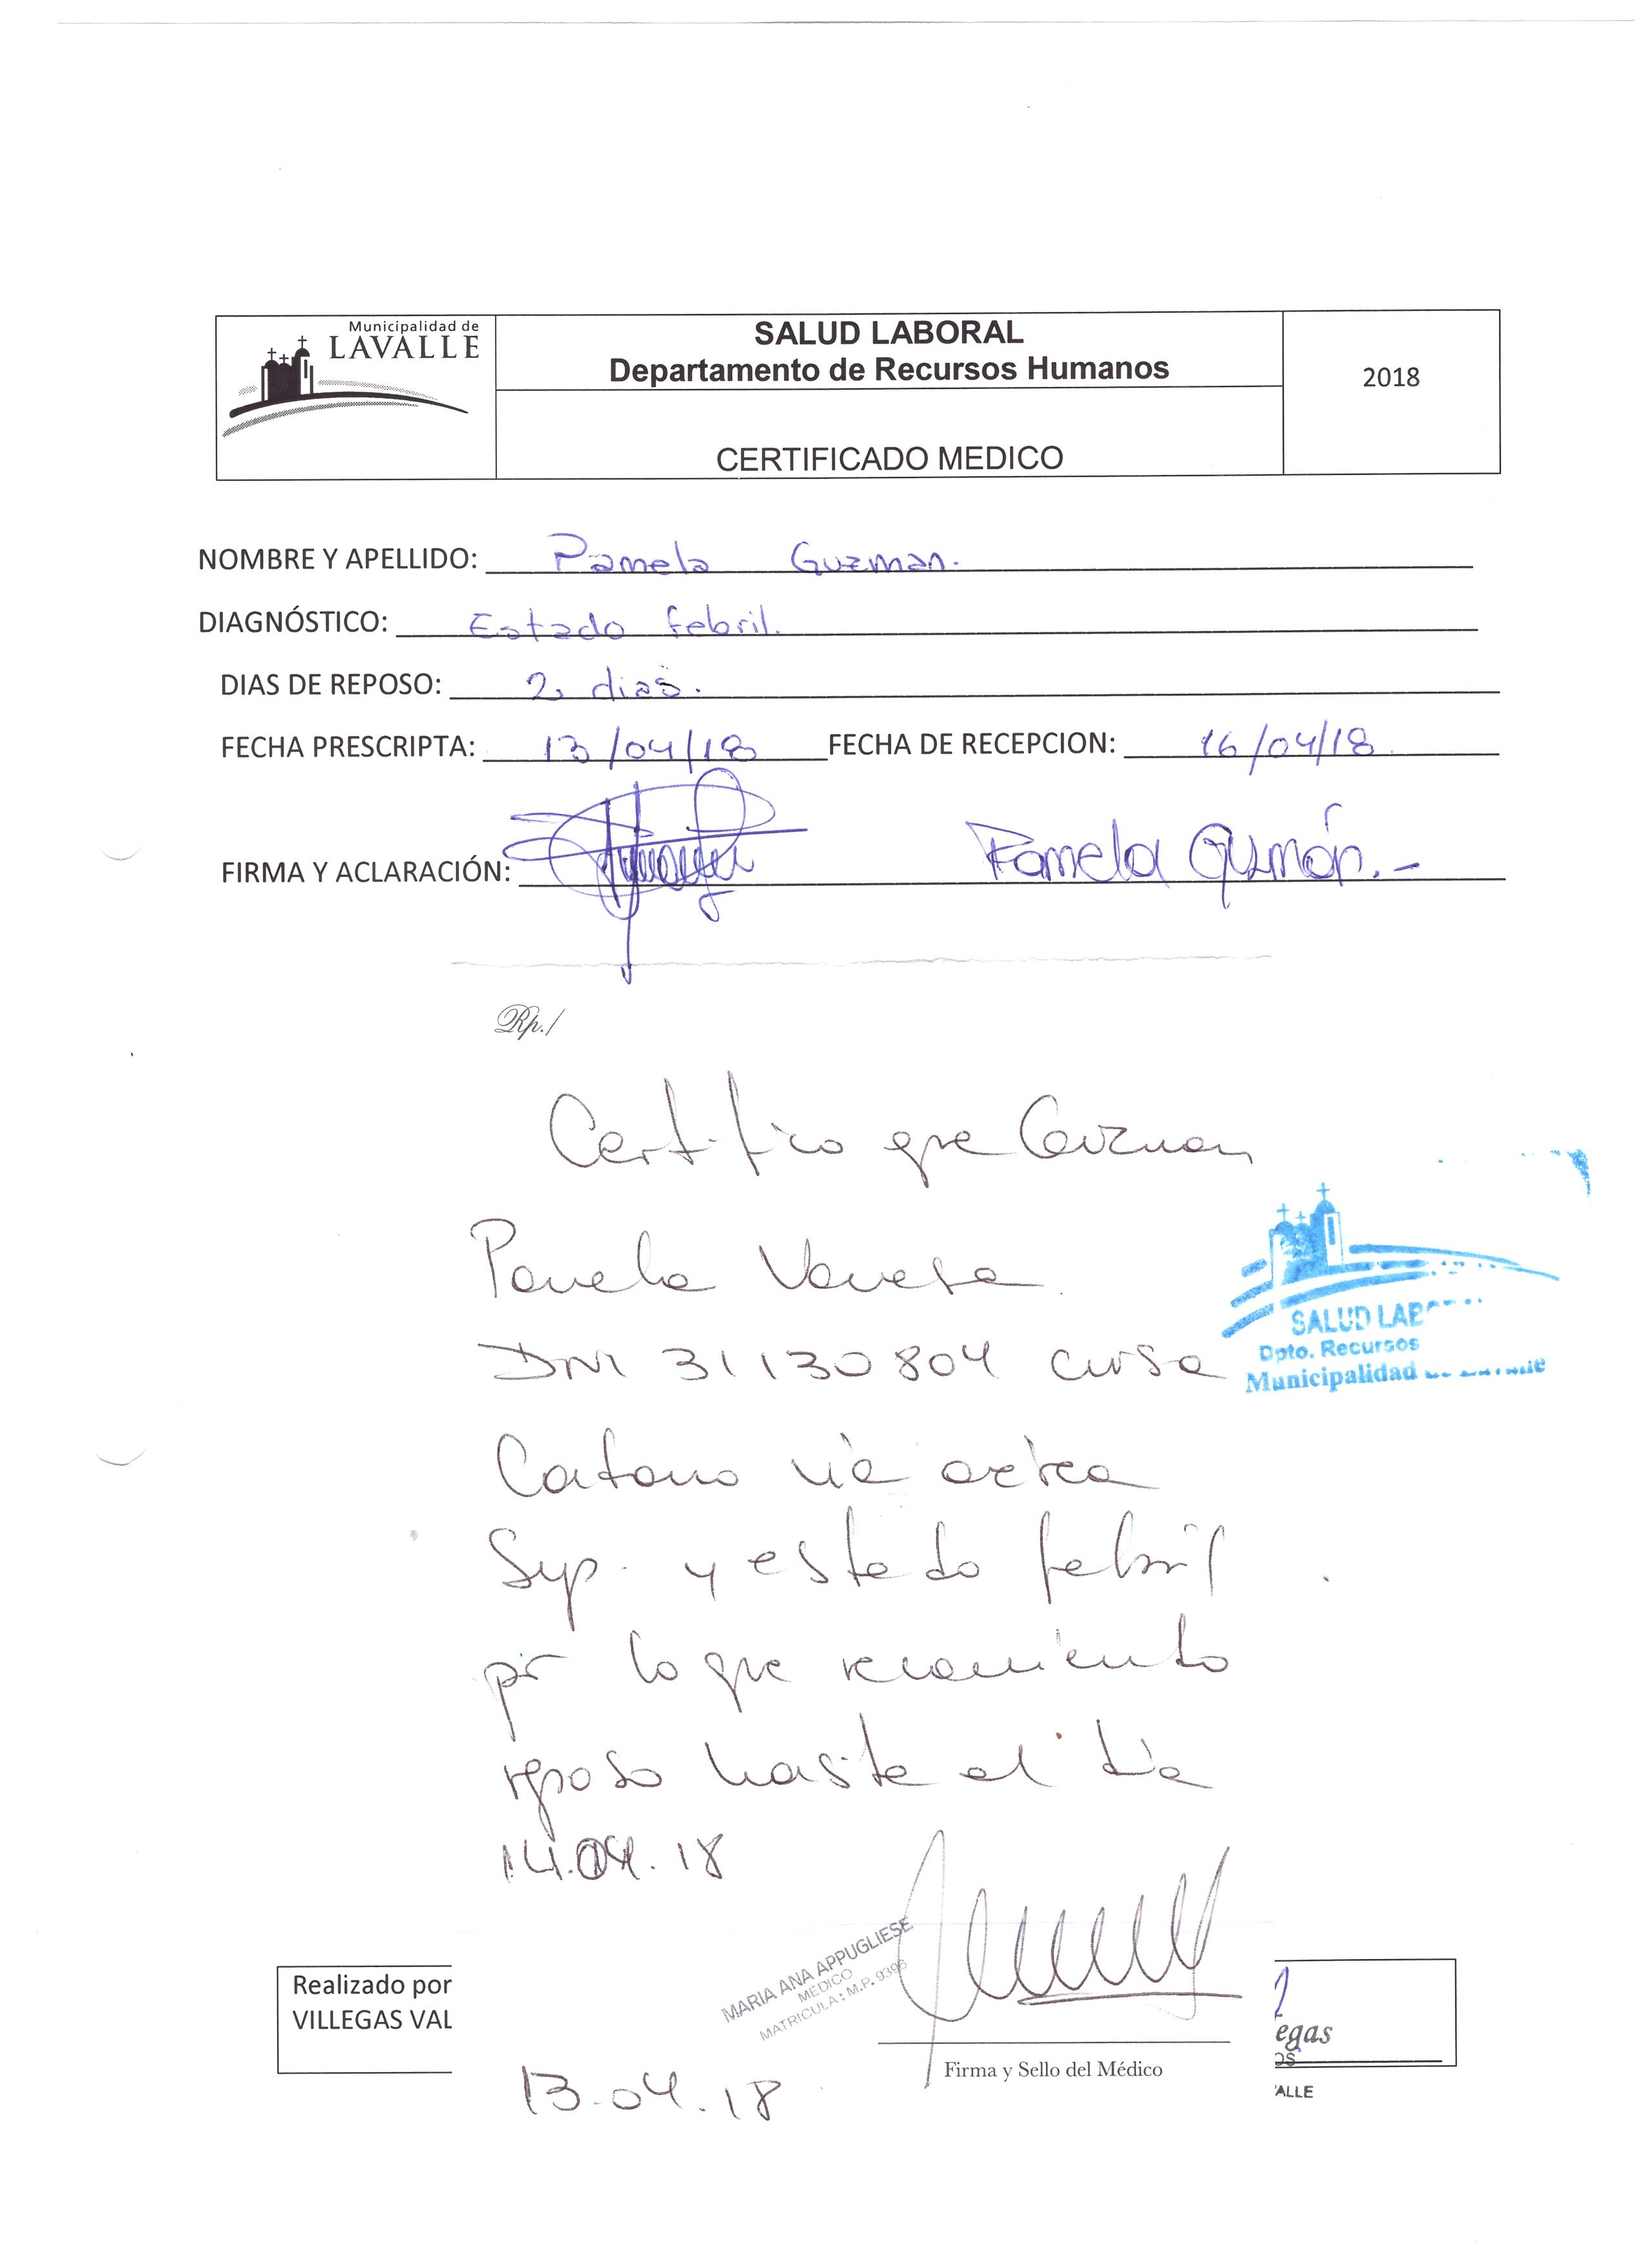 Municipalidad de
LAVALLE
SALUD LABORAL
Departamento de Recursos Humanos
CERTIFICADO MEDICO
2018
NOMBRE Y APELLIDO: Pamela Guzman.
DIAGNÓSTICO: Estado febril.
DIAS DE REPOSO: 2, dias.
FECHA PRESCRIPTA: 13/04/18 FECHA DE RECEPCION: 16/04/18
FIRMA Y ACLARACIÓN: Pamela Guzmán.-
Rp./
Certifico que Guzman
Pamela Vanesa
DNI 31130804 cursa
Catarro vía aérea
Sup. y estado febril
por lo que recomiendo
reposo hasta el día
14.04.18
SALUD LAB
Dpto. Recursos
Municipalidad
MARIA ANA APPUGLIESE
MÉDICO
MATRICULA: M.P. 9396
Firma y Sello del Médico
Realizado por
VILLEGAS VAL
egas
OS
ALLE
13.04.18